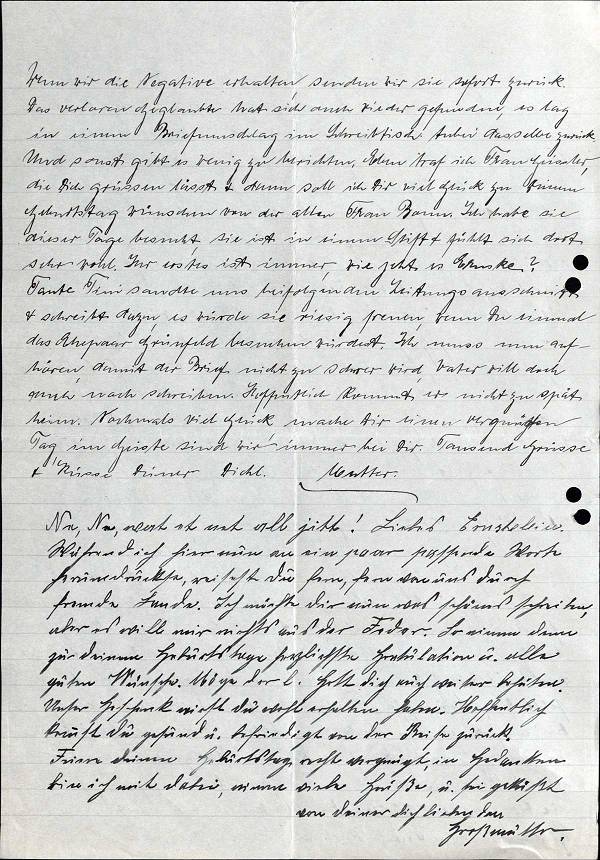 Wenn wir die Negative erhalten, senden wir sie sofort zurück.
Das verloren Geglaubte hat sich auch wieder gefunden, es lag
in einem Briefumschlag im Schreibtische. Anbei dasselbe zurück.
Und sonst gibt es wenig zu berichten. Eben traf ich Frau
die Dich grüssen lässt & dann soll ich Dir viel Glück zu Deinem
Geburtstag wünschen von der alten Frau Bonn. Ich habe sie
dieser Tage besucht, sie ist in einem Stift & fühlt sich dort
sehr wohl. Ihr erstes ist immer, wie geht es Ernske?
Tante Tini sandte uns beifolgenden Zeitungsausschnitt
& schreibt dazu, es würde sie riesig freuen, wenn Du einmal
das Ehepaar Grünfeld besuchen würdest. Ich muss nun auf-
hören, damit der Brief nicht zu schwer wird, Vater will doch
auch noch schreiben. Hoffentlich kommt er nicht zu spät
heim. Nochmals viel Glück, mache Dir einen vergnügten
Tag, im Geiste sind wir immer bei Dir. Tausend Grüsse
& Küsse Deiner Dichl. Mutter.
Nu, Nu, wat et nat all jitt! Liebes Ernstelein.
Während ich hier nun an ein paar passende Worte
herumdrückse, reisest du fern, fern von uns durch
fremde Lande. Ich möchte dir nun was schönes schreiben,
aber es will mir nichts aus der Feder. So nimm denn
zu deinem Geburtstage herzlichste Gratulation u. alle
guten Wünsche. Möge der l. Gott dich auch weiter behüten.
Unser Geschenk wirst du wohl erhalten haben. Hoffentlich
kommst du gesund u. befriedigt von der Reise zurück.
Feiere deinen Geburtstag recht vergnügt, in Gedanken
bin ich mit dabei, nimm viele Grüße, u. sei geküßt
von deiner dich liebenden
Großmutter.